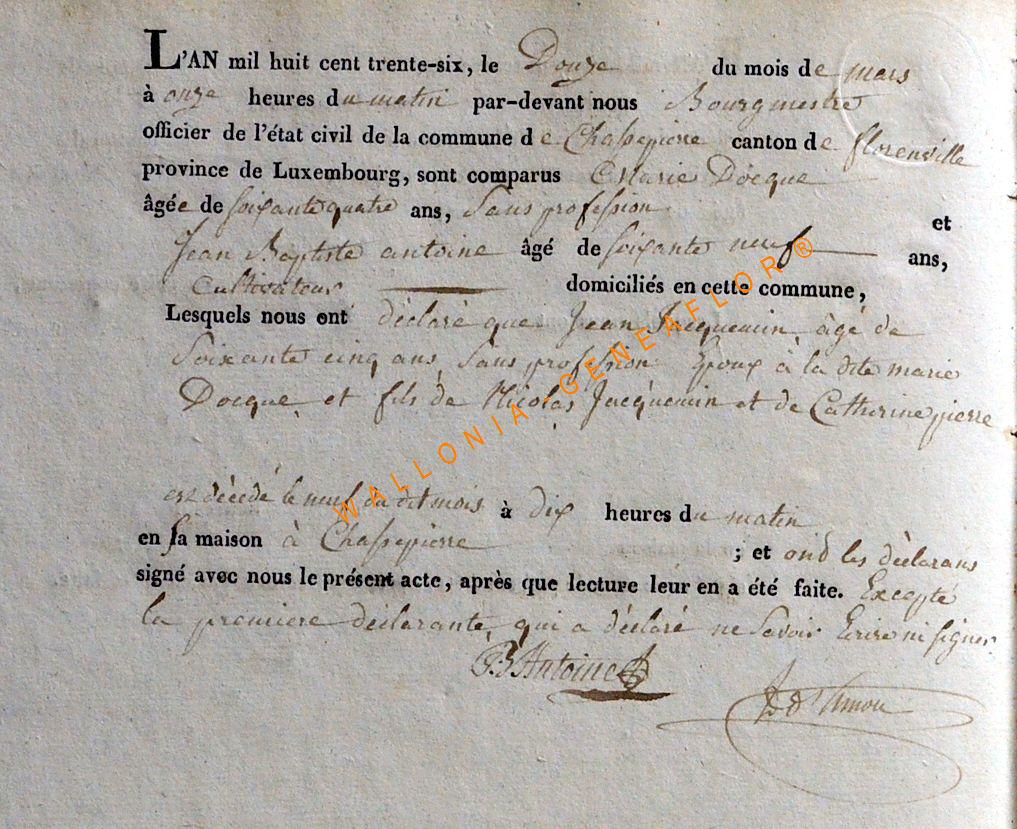 L'AN mil huit cent trente-six, le Douze du mois de mars
à onze heures du matin par-devant nous Bourgmestre
officier de l'état civil de la commune de Chassepierre canton de florenville
province de Luxembourg, sont comparus Marie Docque
âgée de soixante quatre ans, Sans profession et
Jean Baptiste antoine âgé de soixante neuf ans,
Cultivateur domiciliés en cette commune,
Lesquels nous ont déclaré que Jean Jacquemin âgé de
Soixante cinq ans, Sans profession Epoux à la dite marie
Docque, et fils de Nicolas Jacquemin et de Catherine pierre
est décédé le neuf du dit mois à dix heures du matin
en sa maison à Chassepierre ; et ont les déclarans
signé avec nous le présent acte, après que lecture leur en a été faite. Excepté
la premiere déclarante, qui a déclaré ne Savoir Ecrire ni signer.
JB Antoine
WALLONIA-GENEAFLOR®